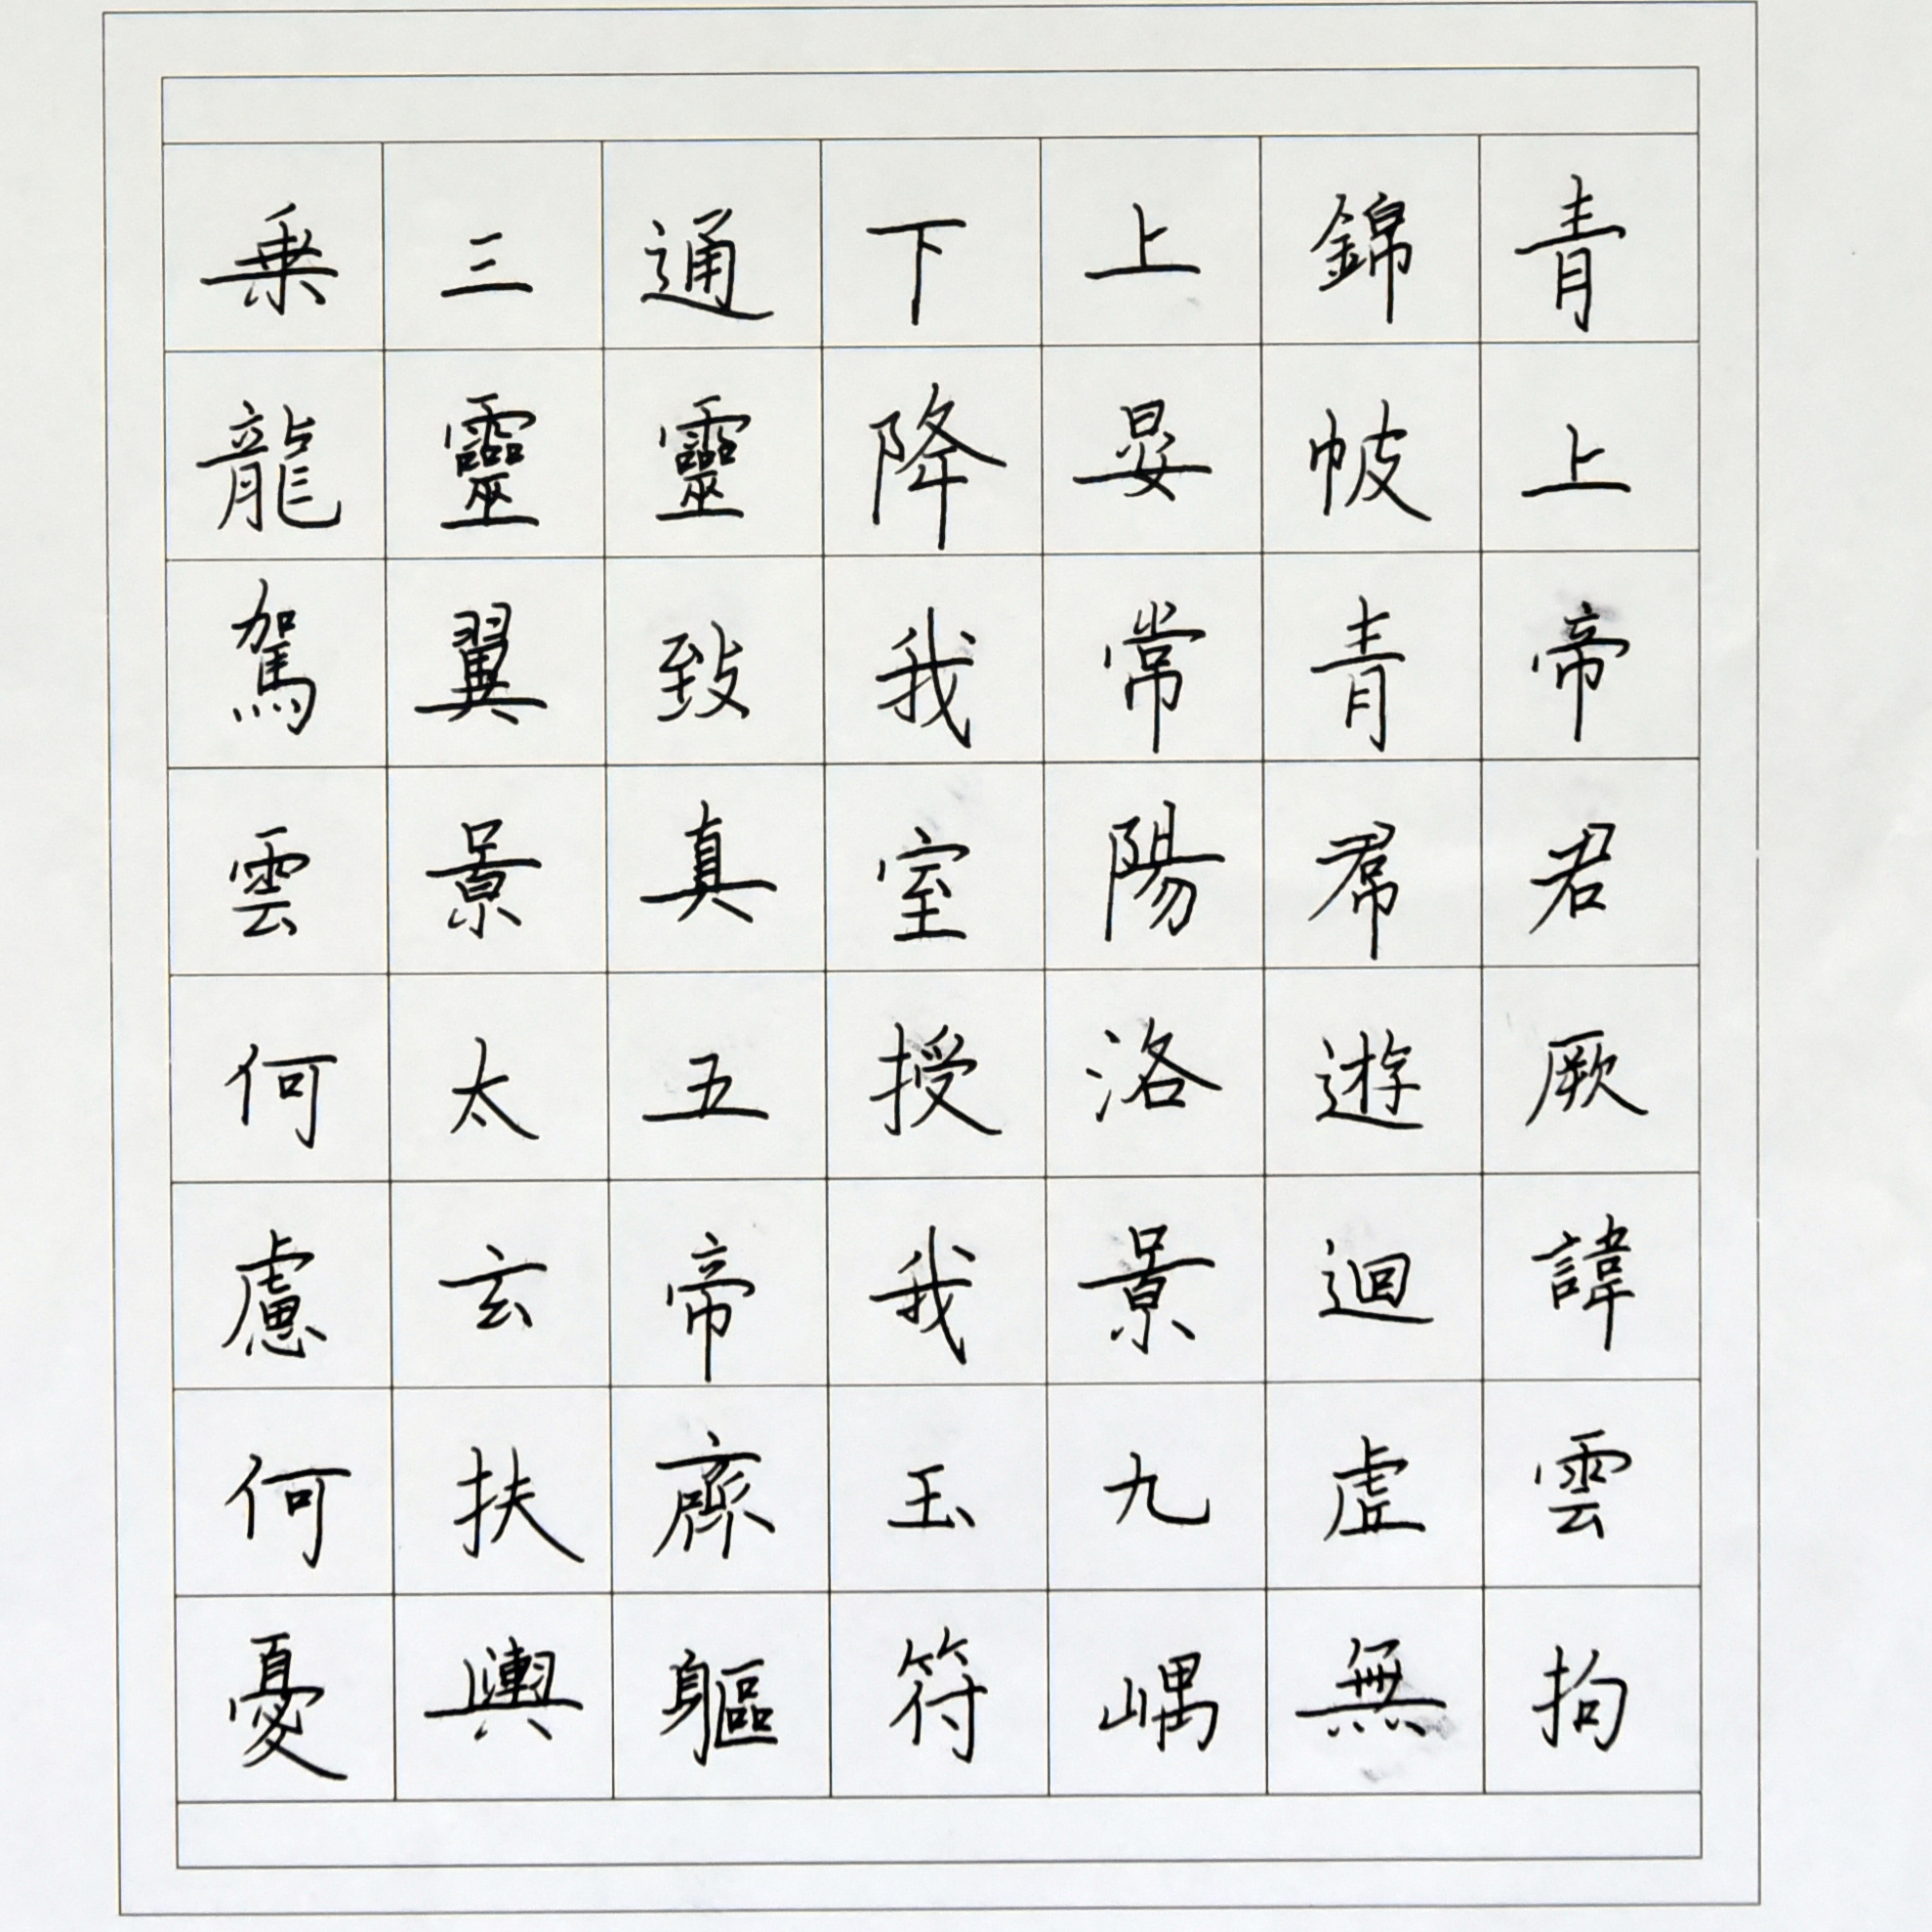 青上帝君厥諱雲拘
錦帔青帬遊迴虛無
上晏常陽洛景九嵎
下降我室授我玉符
通靈致真五帝齊軀
三靈翼景太玄扶輿
乗龍駕雲何慮何憂